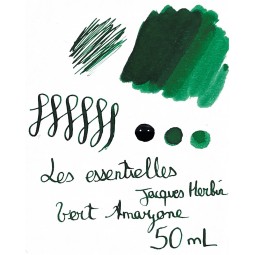 Les essentielles
Jacques Herbin
Vert Amazone
50 mL